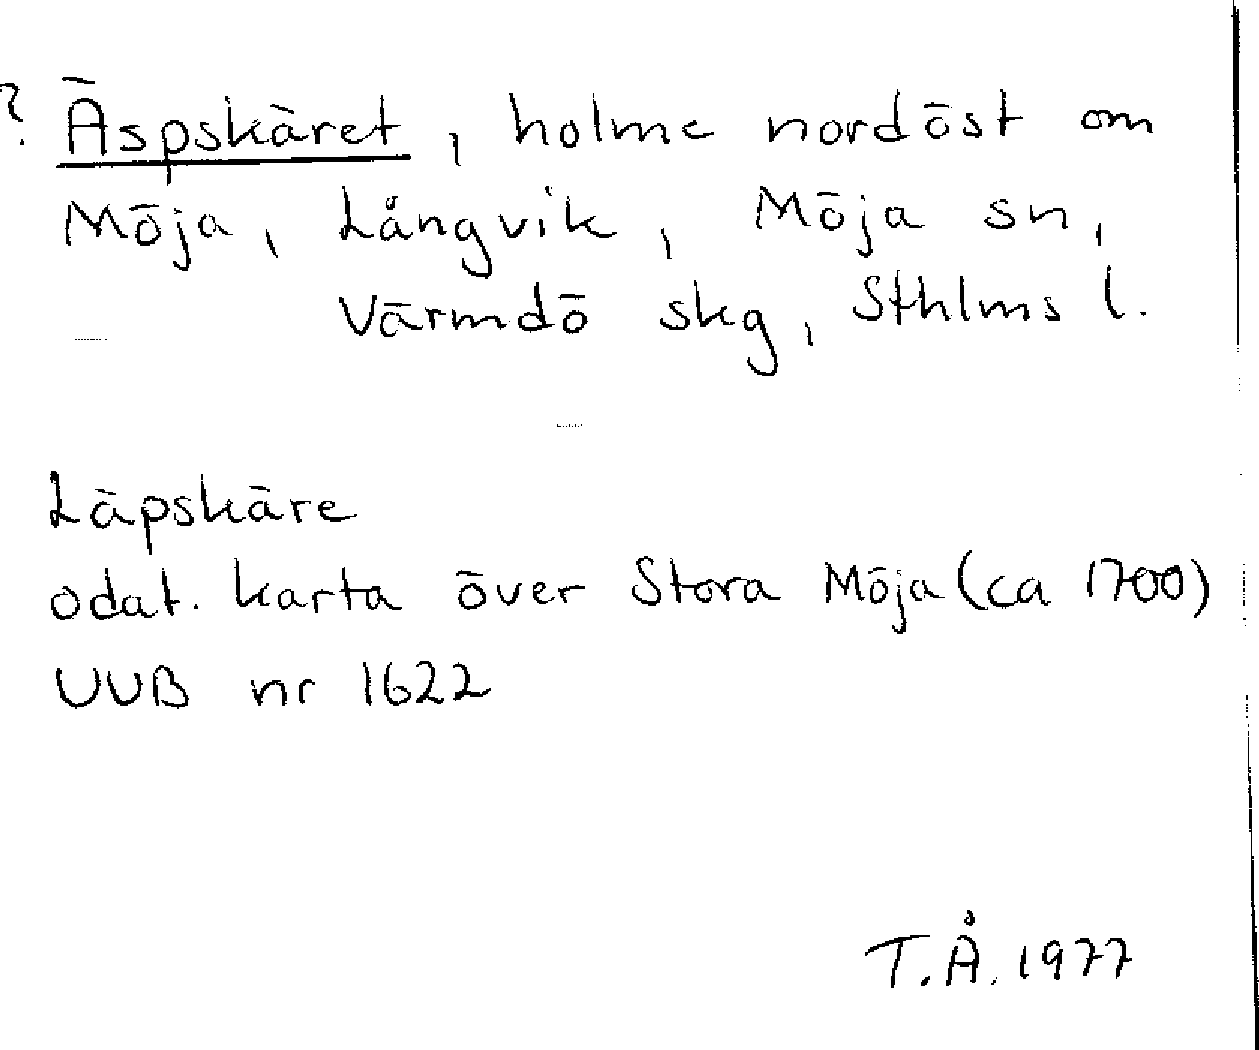 ? Äspskäret, holme nordöst om
Möja, Långvik, Möja sn,
Värmdö skg, Sthlms l.
Läpskäre
odat. karta över Stora Möja (ca 1700)
UUB nr 1622
T.Å. 1977